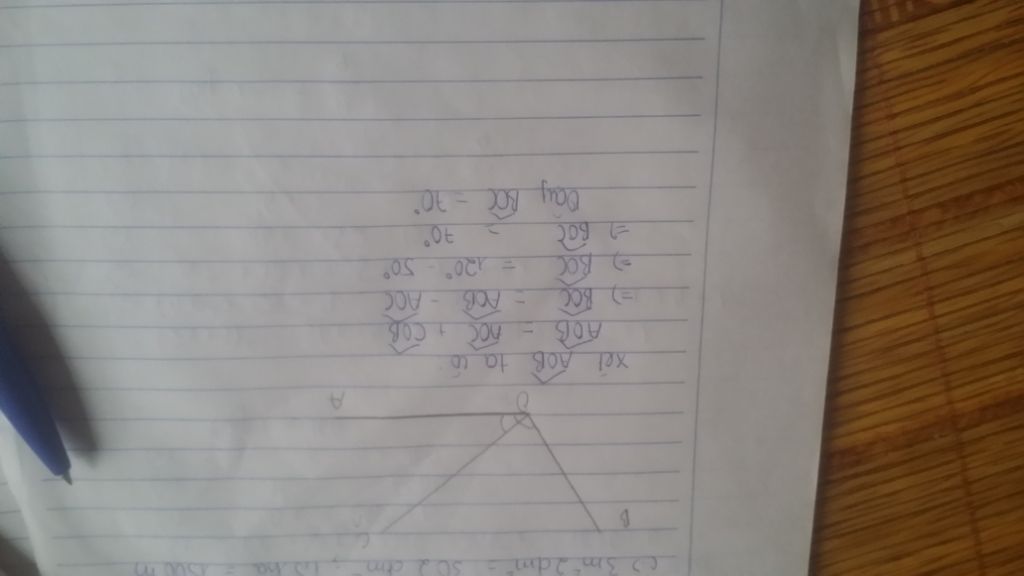 c) 3m² 2dm² = 302 dm² ; 1,5 ha = 15000 m
B
C
O
A
Xét AOB ta có
AOB = AOC + COB
=> BOC = AOB - AOC
=> BOC = 120° - 50°
=> BOC = 70°
Vậy BOC = 70°